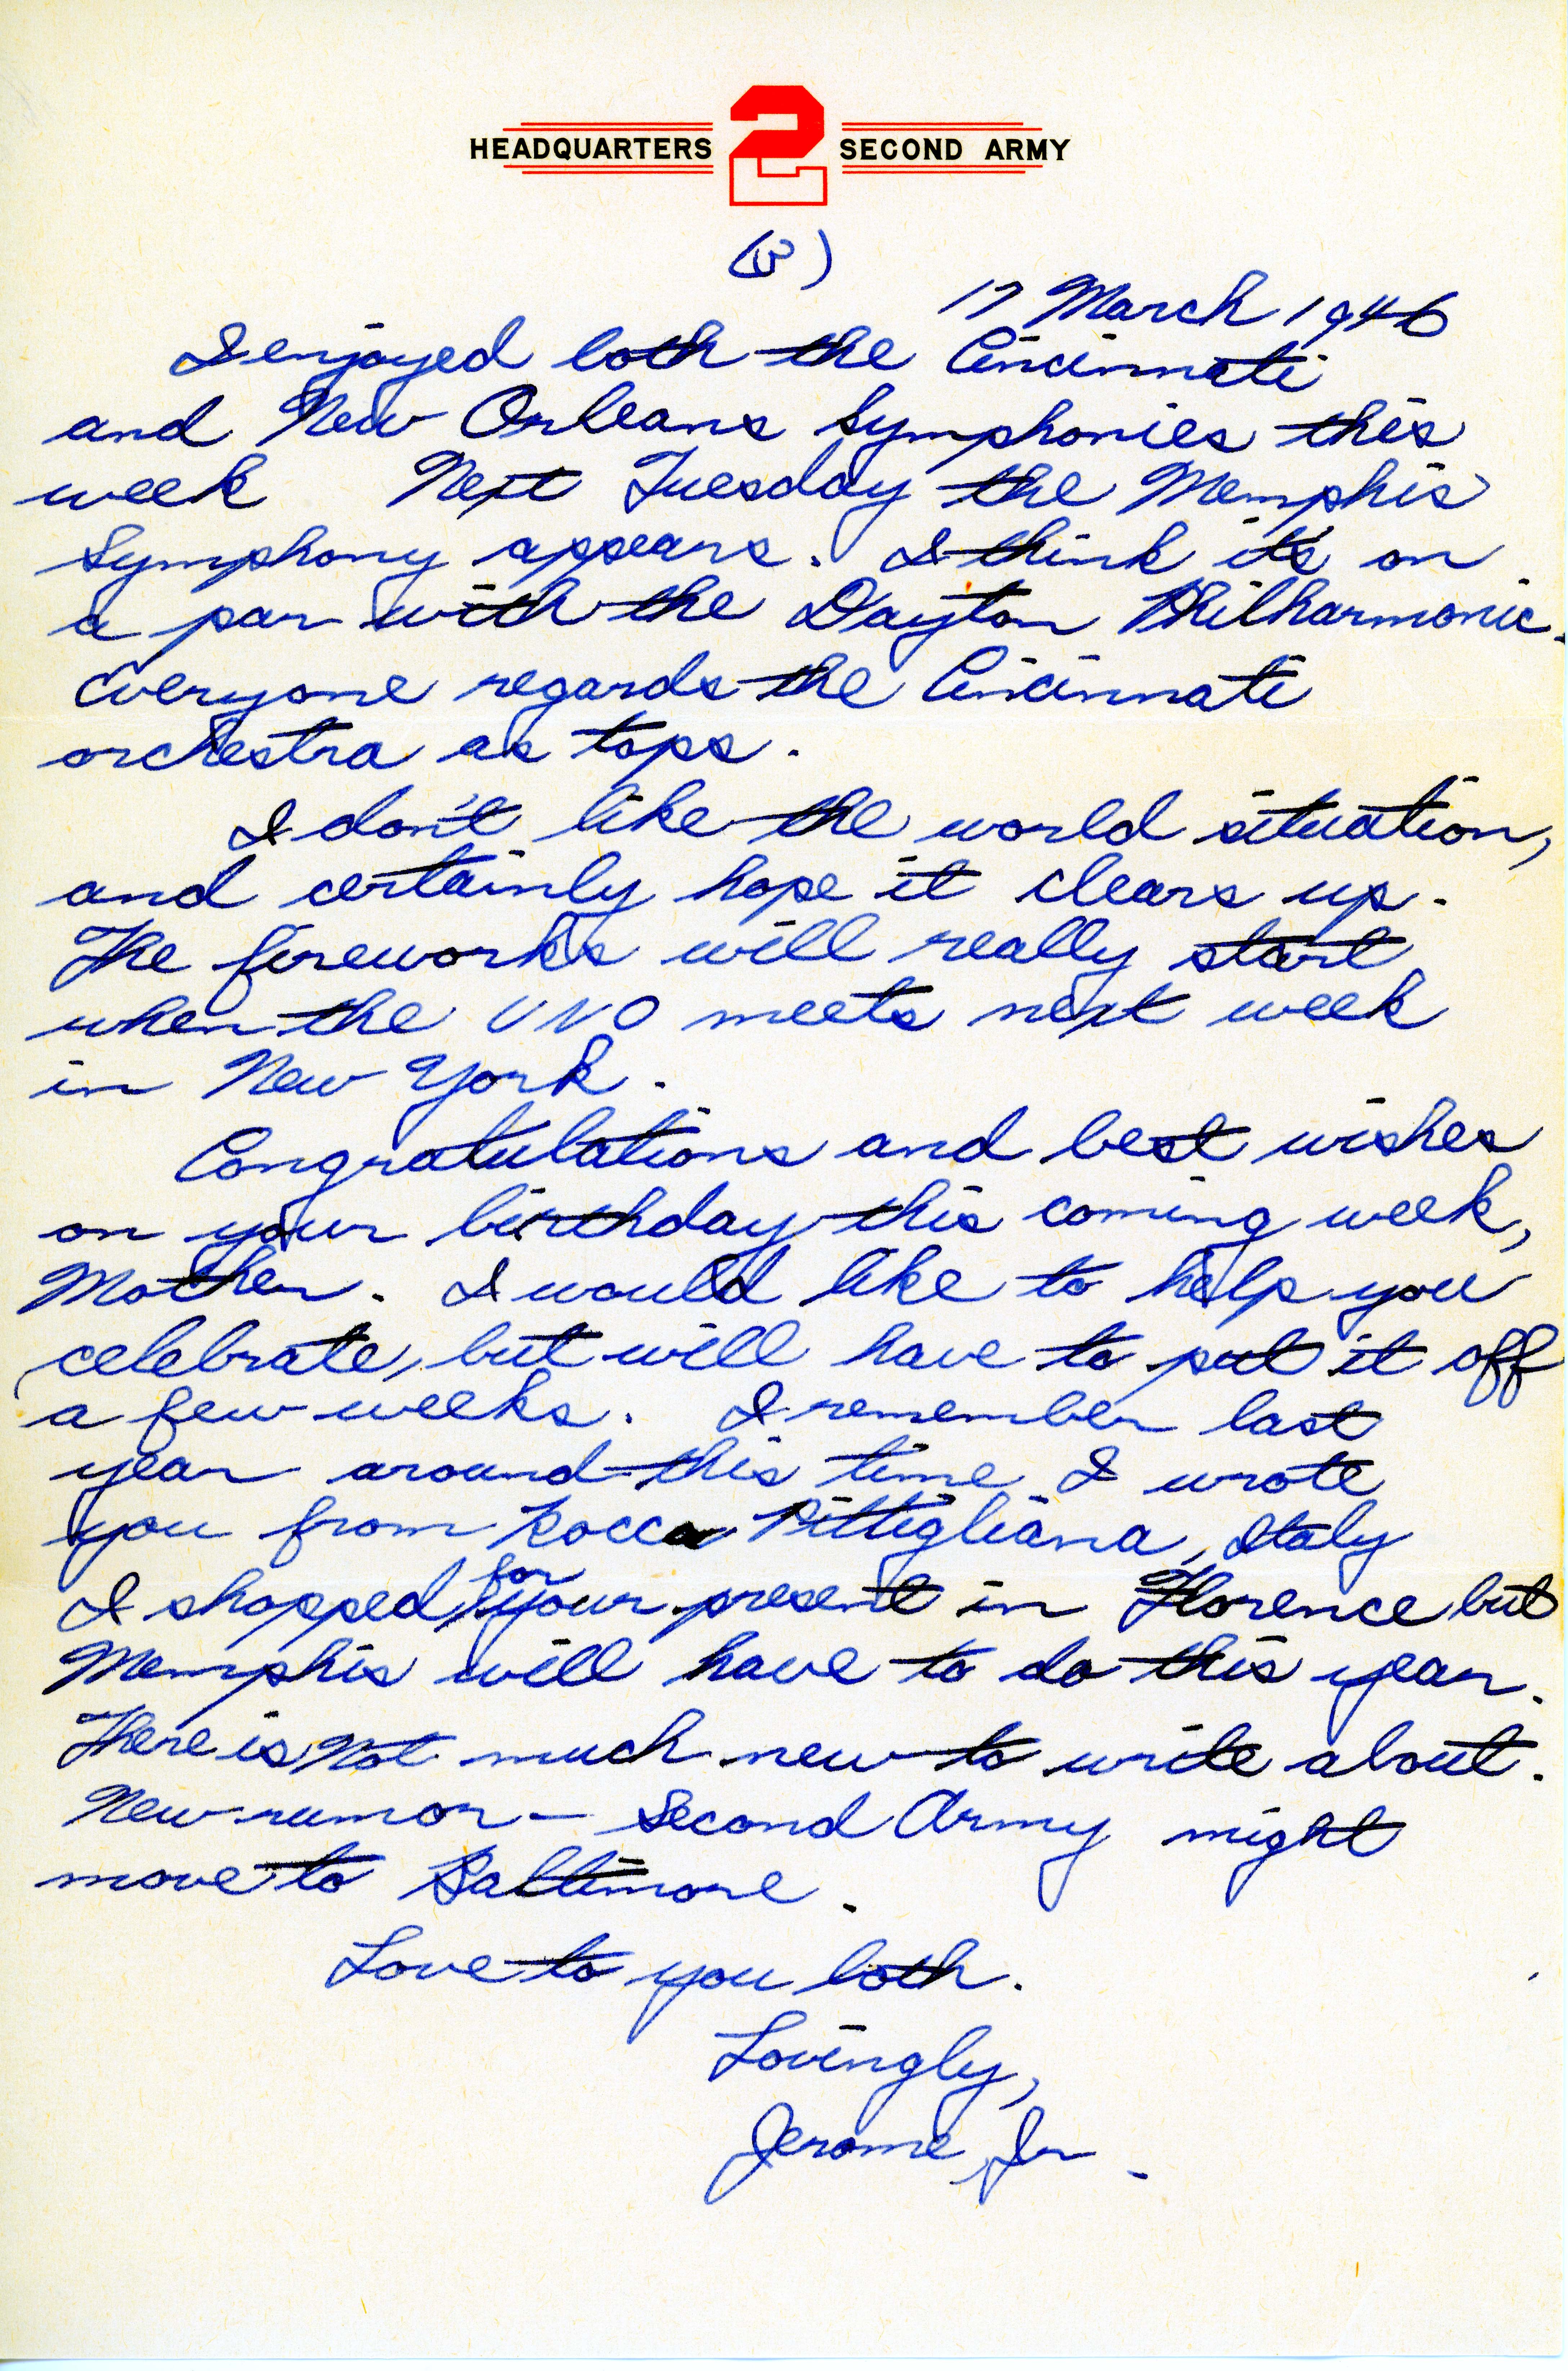 HEADQUARTERS 2 SECOND ARMY
(3)
17 March 1946
I enjoyed both the Cincinnati
and New Orleans Symphonies this
week Next Tuesday the Memphis
Symphony appears. I think it's on
a par with the Dayton Philharmonic.
Everyone regards the Cincinnati
orchestra as tops.
I don't like the world situation,
and certainly hope it clears up.
The fireworks will really start
when the UNO meets next week
in New York.
Congratulations and best wishes
on your birthday this coming week,
Mother. I would like to help you
celebrate, but will have to put it off
a few weeks. I remember last
year around this time I wrote
you from Rocca Pittigliana, Italy
I shopped for your present in Florence but
Memphis will have to do this year.
There is not much new to write about.
New rumor — Second Army might
move to Baltimore.
Love to you both.
Lovingly,
Jerome, Jr.